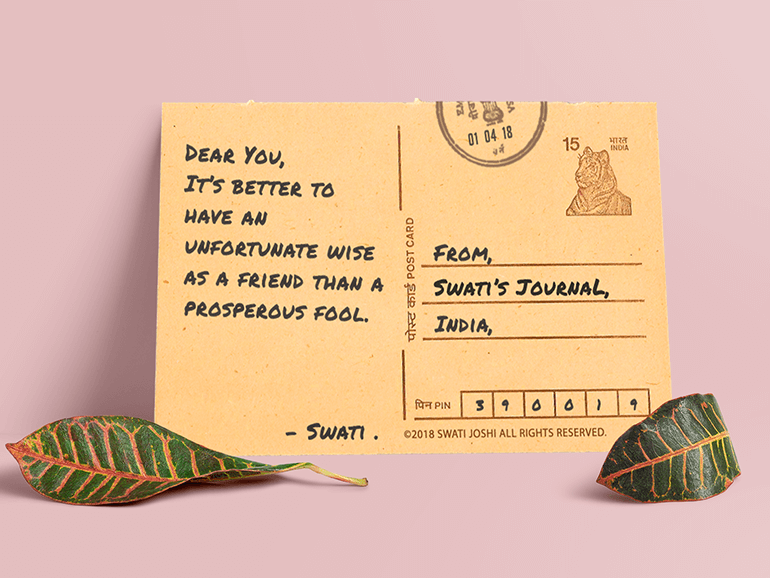 Dear You,
It's better to
have an
unfortunate wise
as a friend than a
prosperous fool.
- Swati .
पोस्ट कार्ड POST CARD
01 04 18
15
भारत
INDIA
From,
Swati's Journal,
India,
पिन PIN 3 9 0 0 1 9
©2018 SWATI JOSHI ALL RIGHTS RESERVED.